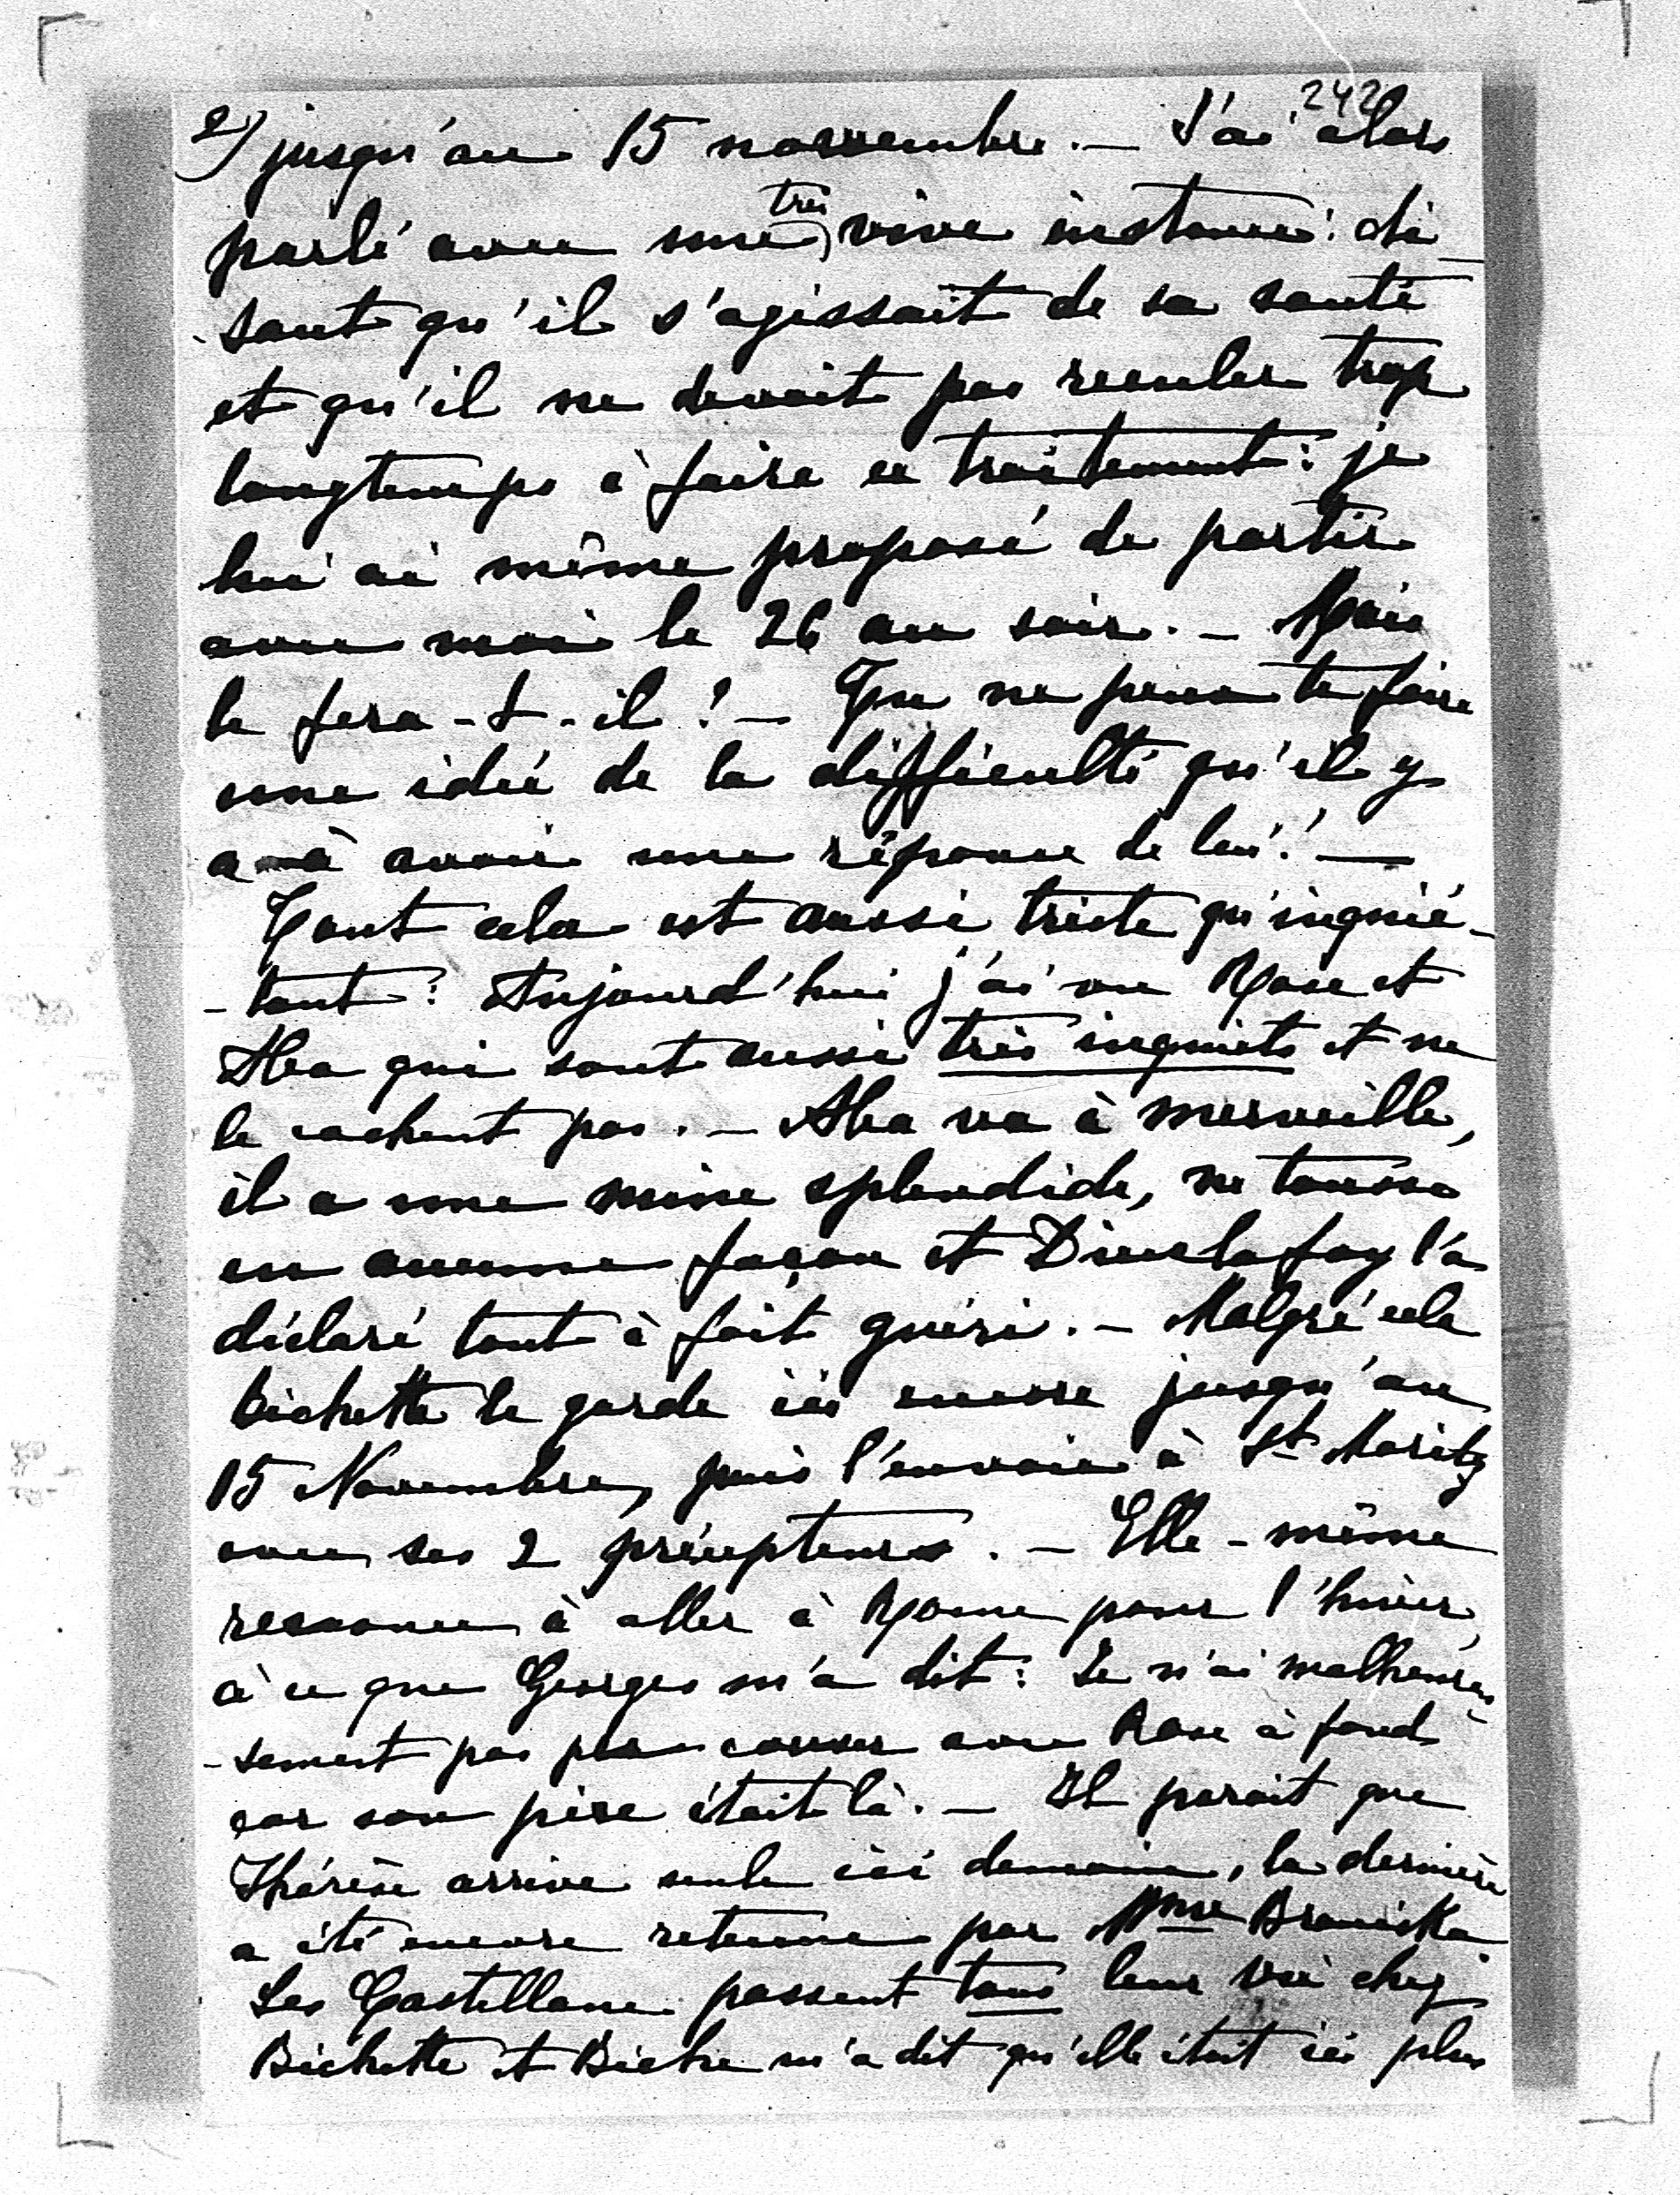 242
2) jusqu'au 15 novembre. — J'ai alors
parlé avec une très vive instance: di-
sant qu'il s'agissait de sa santé
et qu'il ne devait pas reculer trop
longtemps à faire ce traitement: je
lui ai même proposé de partir
avec moi le 26 au soir. — Mais
le fera-t-il? — Tu ne peux te faire
une idée de la difficulté qu'il y
a à avoir une réponse de lui! —
Tout cela est aussi triste qu'inquié-
-tant: Aujourd'hui j'ai vu Rose et
Aba qui sont aussi très inquiets et ne
le cachent pas. — Aba va à merveille,
il a une mine splendide, ne tousse
en aucune façon et Dieulafoy l'a
déclaré tout à fait guéri. — Malgré cela
Bichette le garde ici encore jusqu'au
15 Novembre, puis l'envoie à St Moritz
avec ses 2 précepteurs. — Elle-même
renonce à aller à Rome pour l'hiver,
à ce que Georges m'a dit: Je n'ai malheureu-
-sement pas pu causer avec Rose à fond
car son père était là. — Il paraît que
Thérèse arrive seule ici demain, la dernière
a été encore retenue par Mme Branicka
Les Castellane passent tous leur vie chez
Bichette et Biche m'a dit qu'elle était ici plus